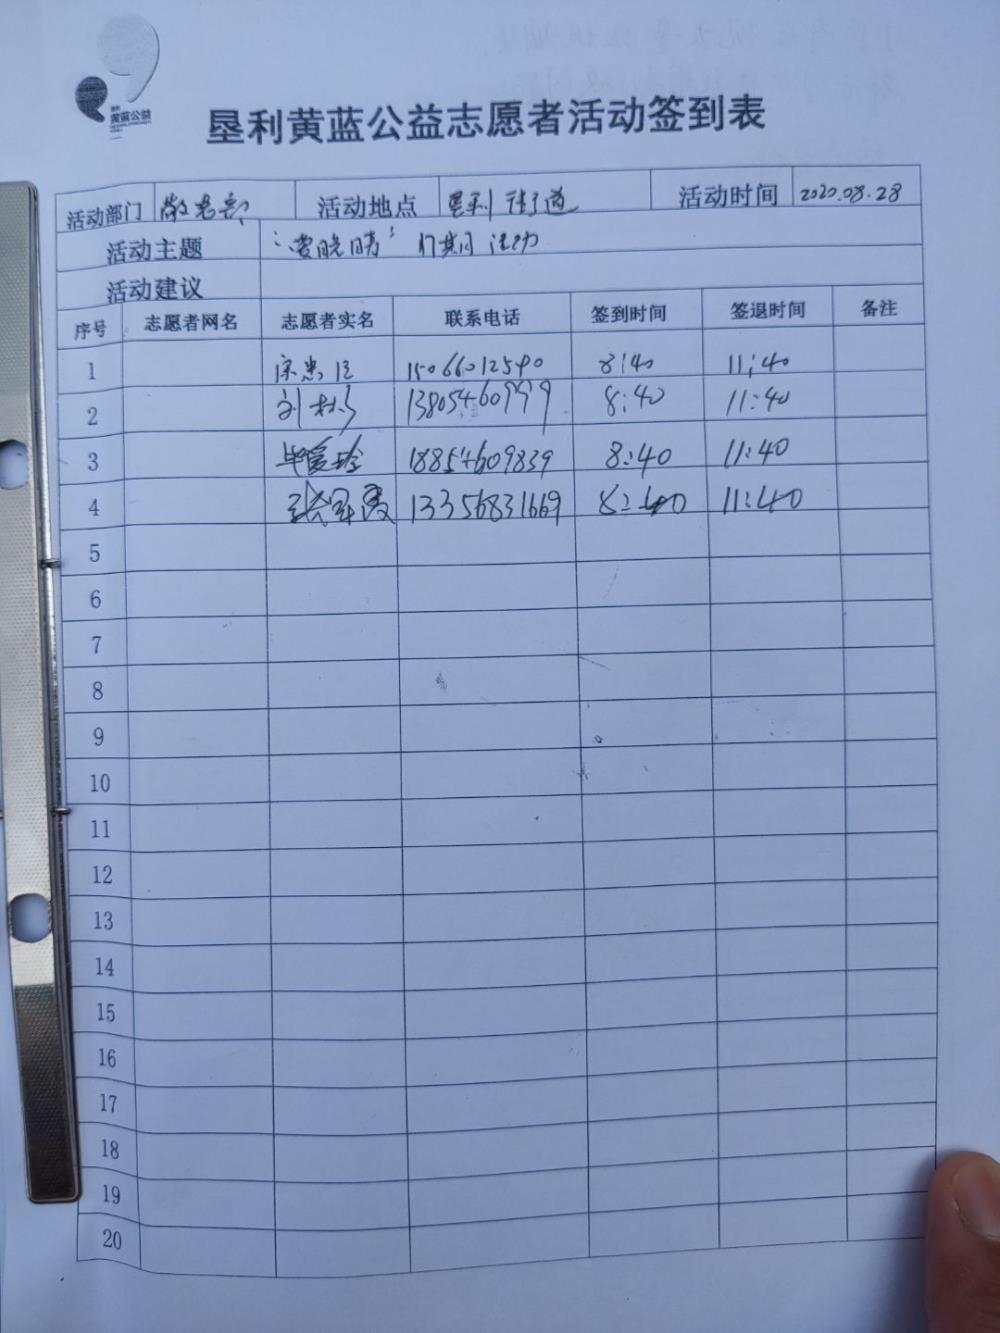 黄蓝公益
垦利黄蓝公益志愿者活动签到表
活动部门 敬老部 活动地点 垦利街道 活动时间 2020.08.28
活动主题
活动建议
序号 志愿者网名 志愿者实名 联系电话 签到时间 签退时间 备注
1 15066012590 8:40 11:40
2 13805460999 8:40 11:40
3 18854609839 8:40 11:40
4 张军霞 13356831669 8:40 11:40
5
6
7
8
9
10
11
12
13
14
15
16
17
18
19
20